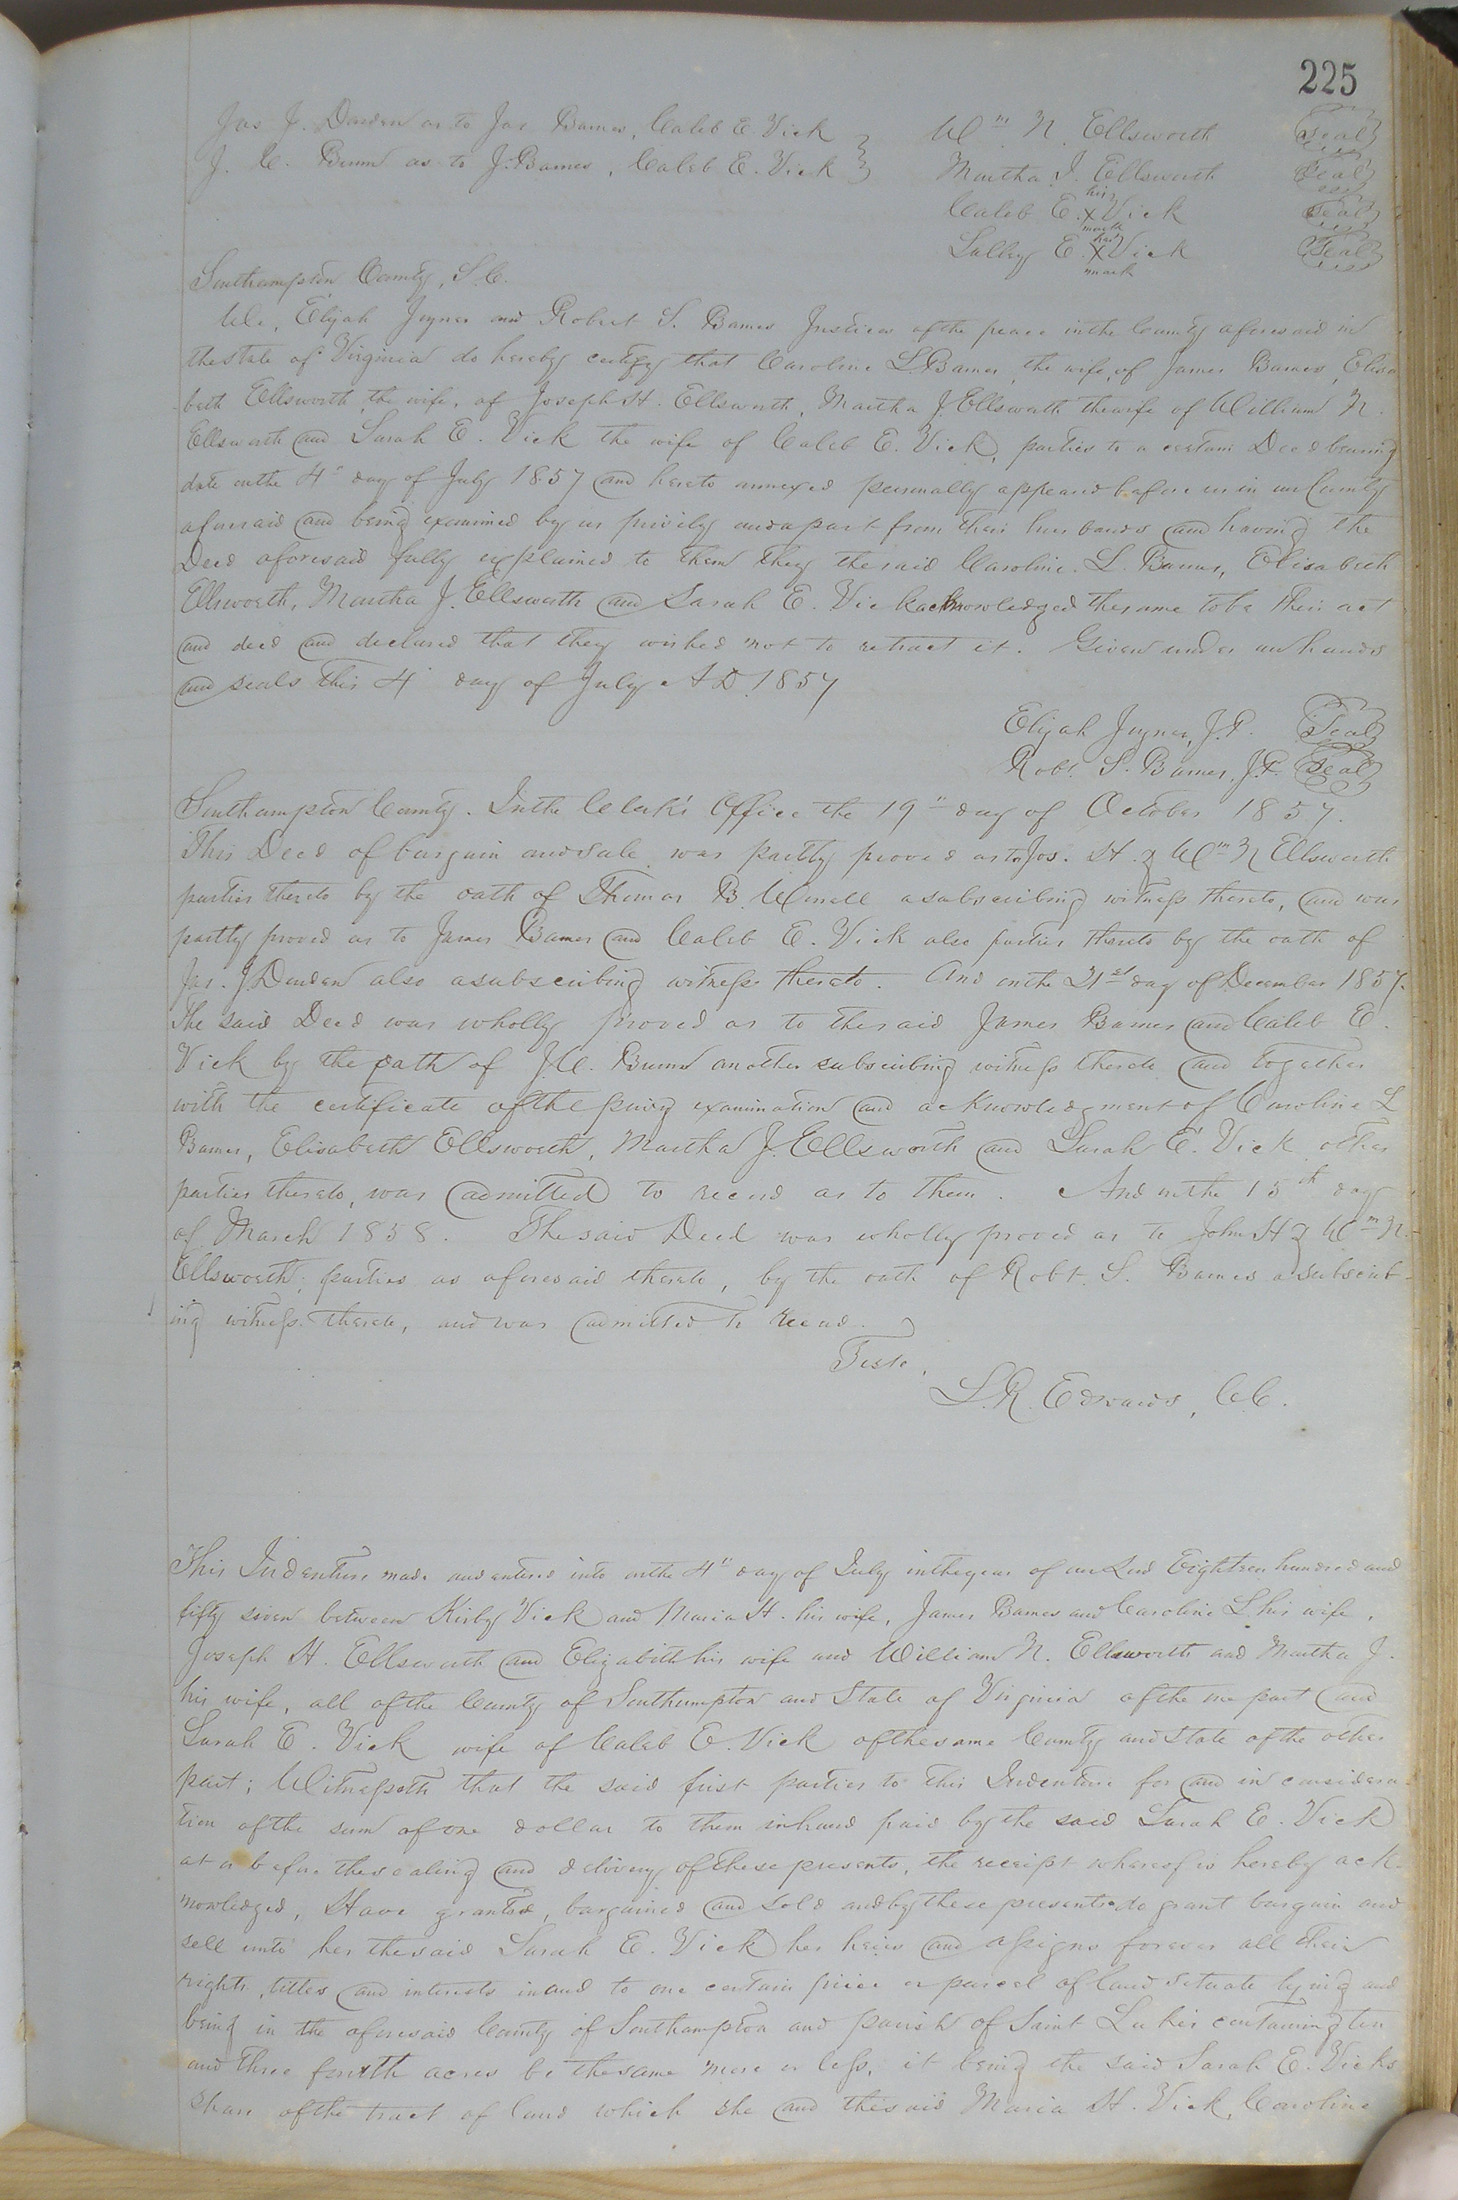 225
Jas J. Darden as to Jas Barnes, Caleb E Vick } Wm N. Ellsworth Seal
J. C. Bunn as to J. Barnes, Caleb E. Vick } Martha J. Ellsworth Seal
his
Caleb E. x Vick Seal
mark
her
Salley E. x Vick Seal
mark
Southampton County, S.C.
We, Elijah Joyner and Robert S. Barnes Justices of the peace in the County aforesaid in
the state of Virginia do hereby certify that Caroline L. Barnes, the wife, of James Barnes, Elisa
beth Ellsworth, the wife, of Joseph H. Ellsworth, Martha J. Ellsworth the wife of William N.
Ellsworth and Sarah E. Vick the wife of Caleb E. Vick, parties to a certain Deed bearing
date on the 4th day of July 1857 and hereto annexed personally appeared before us in our County
aforesaid and being examined by us privily and apart from their husbands and having the
Deed aforesaid fully explained to them they the said Caroline. L. Barnes, Elisabeth
Ellsworth, Martha J. Ellsworth and Sarah E. Vick acknowledged the same to be their act
and deed and declared that they wished not to retract it. Given under our hands
and seals this 4 day of July A D. 1857
Elijah Joyner, J.P. Seal
Robt. S. Barnes, J.P. Seal
Southampton County. In the Clerk's Office the 19th day of October 1857.
This Deed of bargain and sale was partly proved as to Jos. H. & Wm N Ellsworth
parties thereto by the oath of Thomas B. Worrell a subscribing witness thereto, and was
partly proved as to James Barnes and Caleb E. Vick also parties thereto by the oath of
Jas. J Darden also a subscribing witness thereto. And on the 21st day of December 1857.
The said Deed was wholly proved as to the said James Barnes and Caleb E.
Vick by the oath of J.C. Bunn another subscribing witness thereto and together
with the certificate of the privy examination and acknowledgment of Caroline L
Barnes, Elisabeth Ellsworth, Martha J. Ellsworth and Sarah E. Vick other
parties thereto, was admitted to record as to them. And on the 15th day
of March 1858. The said Deed was wholly proved as to John H & Wm N.
Ellsworth, parties as aforesaid thereto, by the oath of Robt. S. Barnes a subscrib-
ing witness thereto, and was admitted to record.
Teste,
L.R. Edwards, C.C.
This Indenture made and entered into on the 4th day of July in the year of our Lord Eighteen hundred and
fifty seven between Kirby Vick and Maria H. his wife, James Barnes and Caroline L his wife,
Joseph H. Ellsworth and Elizabeth his wife and William N. Ellsworth and Martha J.
his wife, all of the County of Southampton and State of Virginia of the one part and
Sarah E. Vick wife of Caleb E. Vick of the same County and State of the other
part; Witnesseth that the said first parties to this Indenture for and in considera-
tion of the sum of one dollar to them in hand paid by the said Sarah E. Vick
at or before the sealing and delivery of these presents, the receipt whereof is hereby ack-
nowledged, Have granted, bargained and sold and by these presents do grant bargain and
sell unto her the said Sarah E. Vick her heirs and assigns forever all their
rights, titles and interests in and to one certain piece or parcel of land situate lying and
being in the aforesaid County of Southampton and parish of Saint Lukes containing ten
and three fourth acres be the same more or less, it being the said Sarah E. Vicks
share of the tract of land which she and the said Maria H. Vick, Caroline